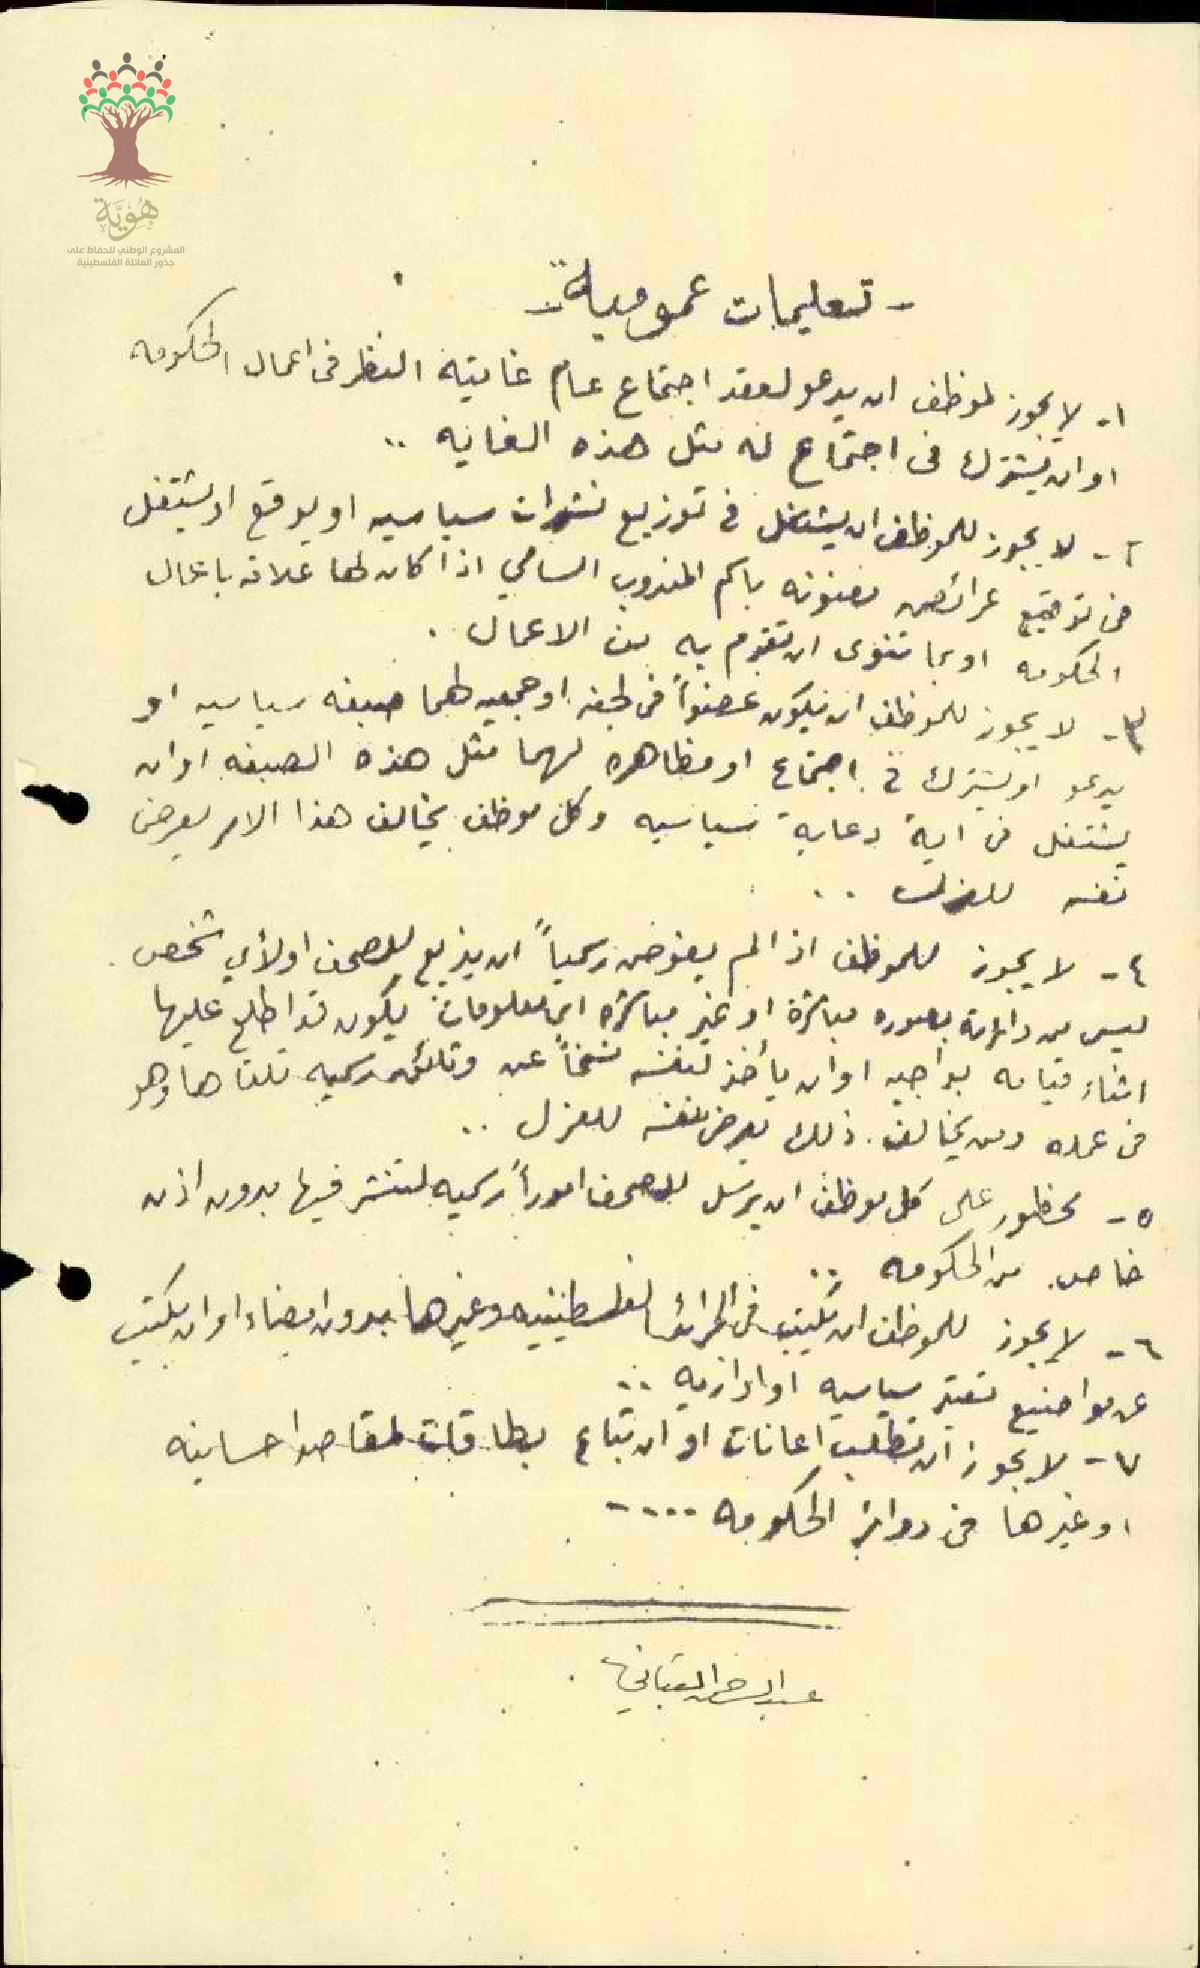 هُوِيَّة
المشروع الوطني للحفاظ على
جذور العائلة الفلسطينية
- تعليمات عمومية -
١- لا يجوز لموظف ان يدعو لعقد اجتماع عام غايته النظر فى اعمال الحكومه
او ان يشترك فى اجتماع له مثل هذه الغايه ..
٢- لا يجوز للموظف ان يشتغل فى توزيع نشرات سياسيه او يوقع او يشتغل
فى توقيع عرائض معنونه باسم المندوب السامي اذا كان لها علاقه باعمال
الحكومه او بما تنوى ان تقوم به من الاعمال .
٣- لا يجوز للموظف ان يكون عضواً فى لجنه او جمعيه لهما صبغه سياسيه او
يدعو او يشترك فى اجتماع او مظاهره لهما مثل هذه الصبغه او ان
يشتغل فى اية دعاية سياسيه وكل موظف يخالف هذا الامر يعرض
نفسه للعزل ..
٤- لا يجوز للموظف اذا لم يفوض رسمياً ان يذيع للصحف او لأي شخص
ليس من دائرته بصوره مباشرة او غير مباشره اي معلومات يكون قد اطلع عليها
اثناء قيامه بواجبه او ان يأخذ لنفسه نسخاً عن وثائق رسميه تلقاها وهو
فى عمله ومن يخالف ذلك يعرض نفسه للعزل ..
٥- محظور على كل موظف ان يرسل للصحف اموراً رسميه لتنشر فيها بدون اذن
خاص من الحكومه ..
٦- لا يجوز للموظف ان يكتب فى الجرائد الفلسطينيه وغيرها بدون امضاء او ان يكتب
عن مواضيع تعتبر سياسيه او اداريه ..
٧- لا يجوز ان تطلب اعانات او ان تباع بطاقات لمقاصد احسانيه
او غيرها فى دوائر الحكومه ....
عبد الرحمن